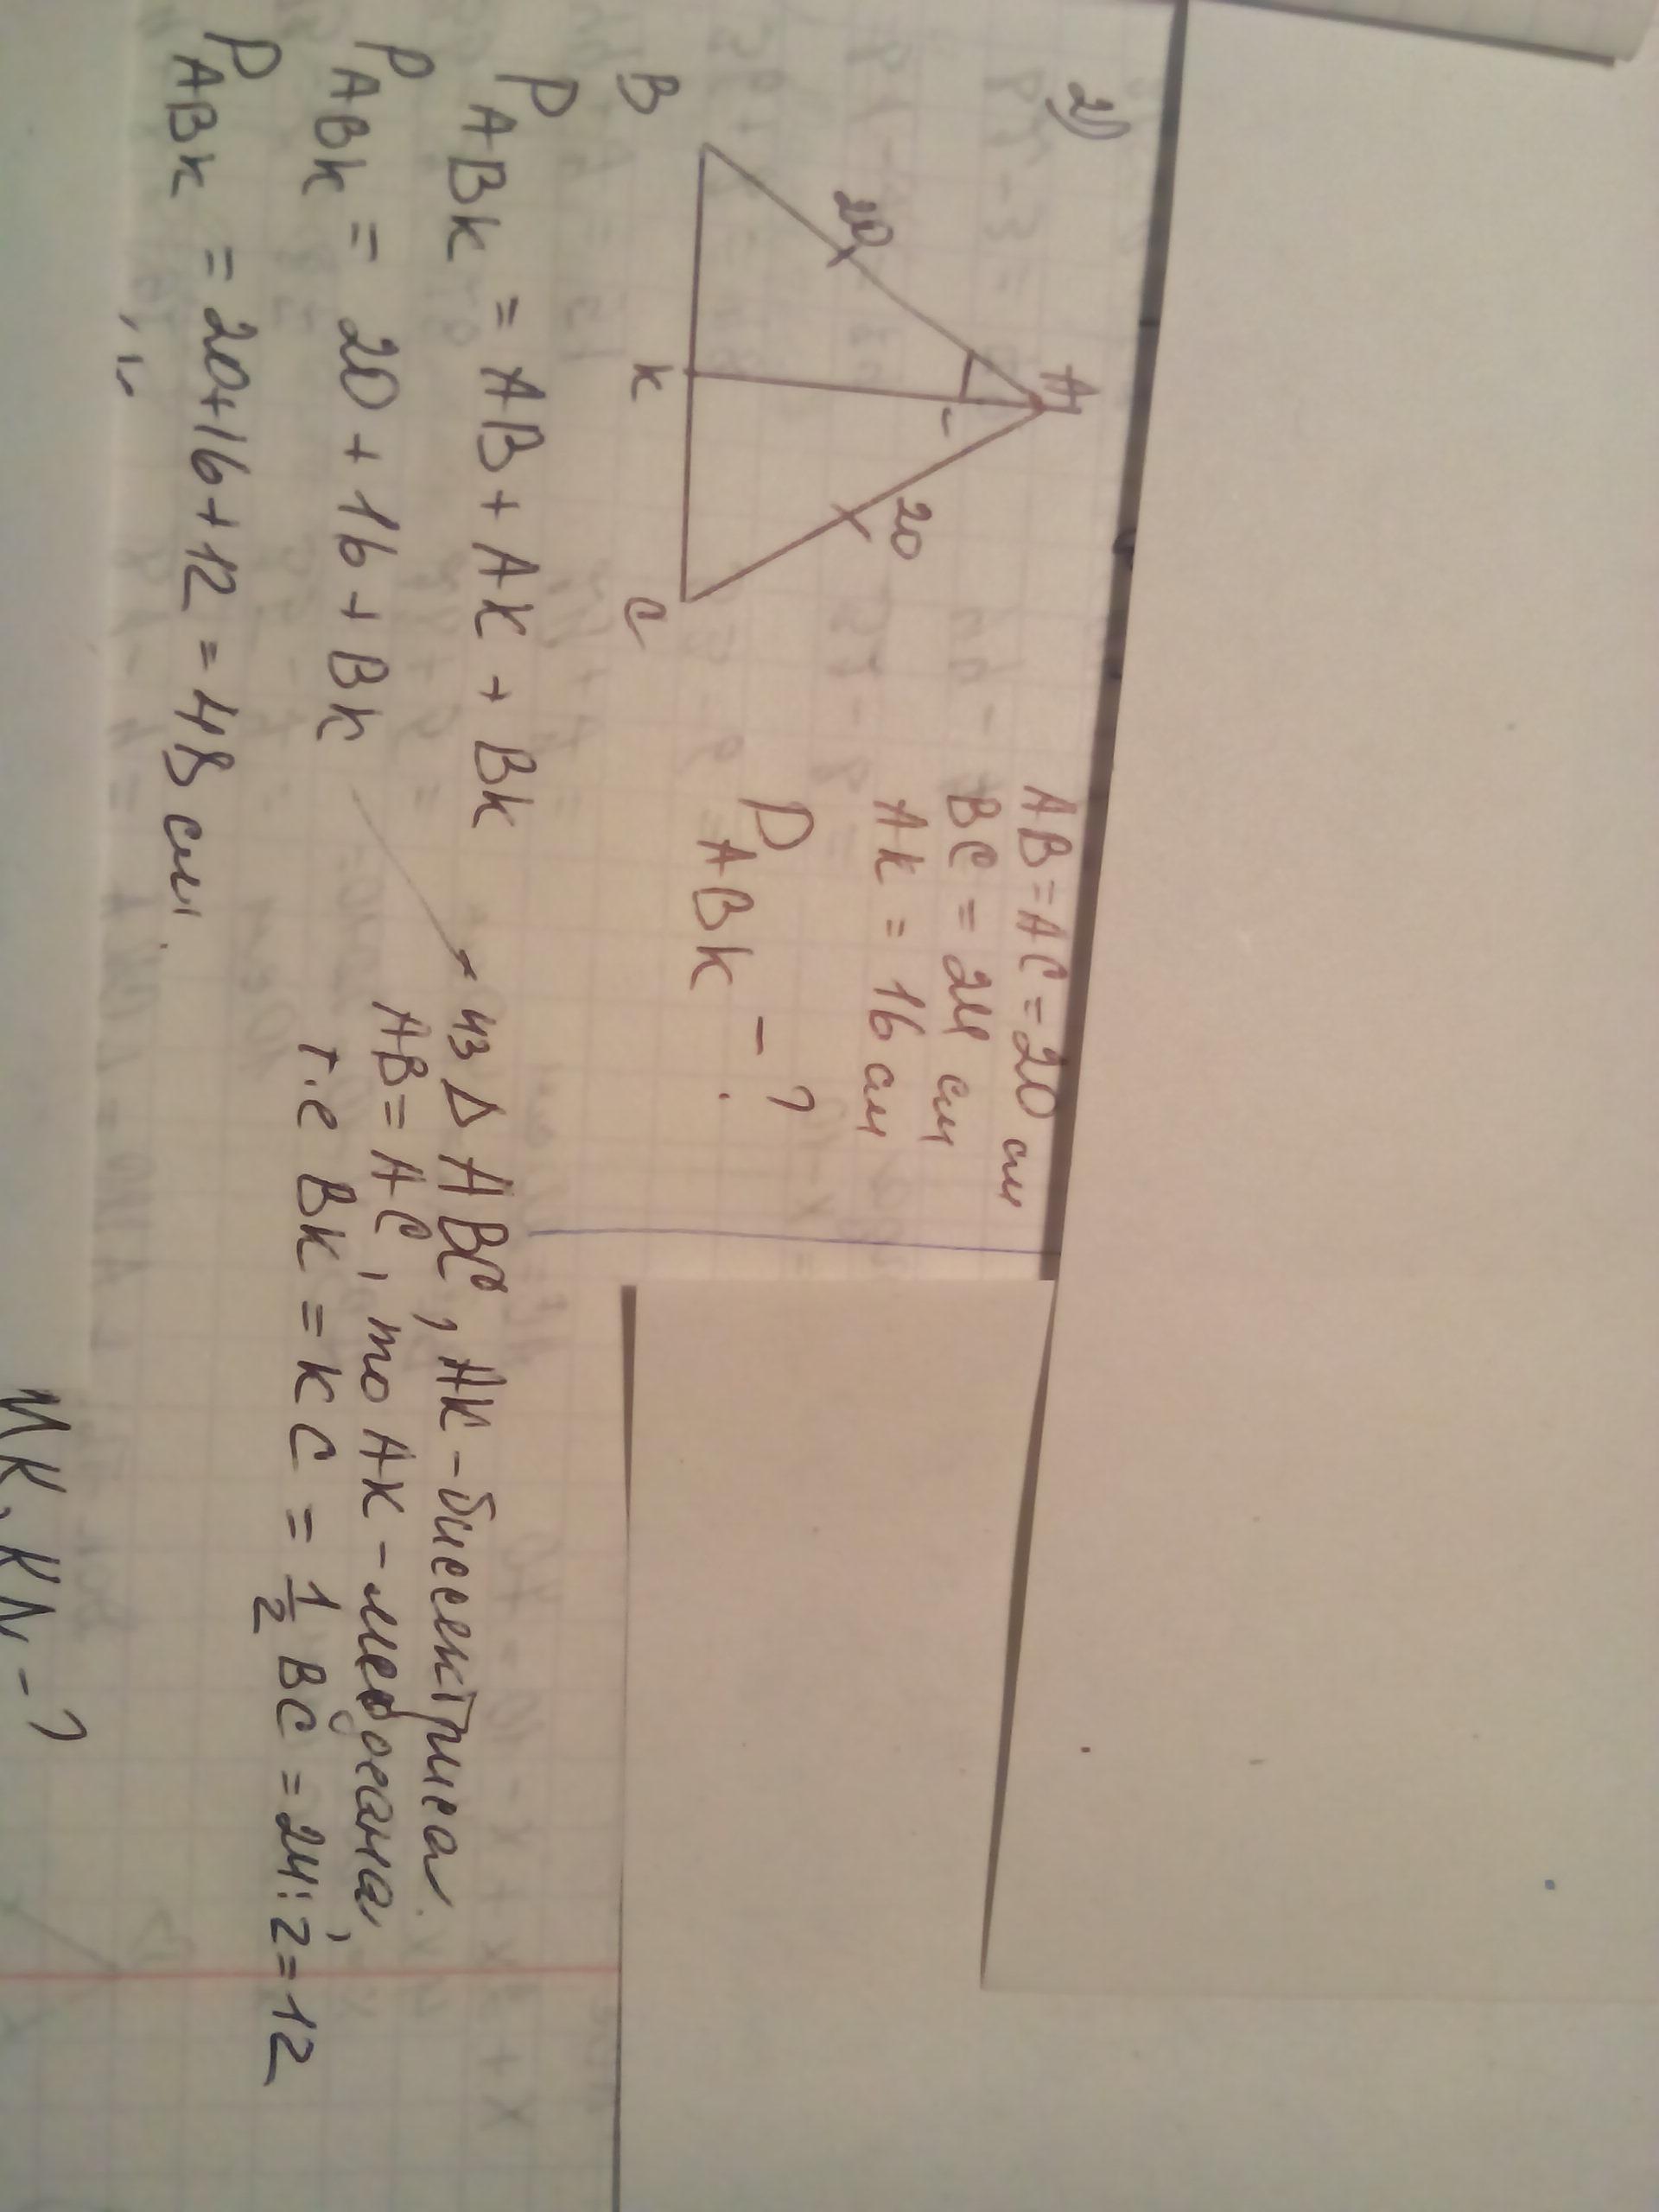 2)
A
20
20
B
K
C
AB=AC=20 см
BC = 24 см
AK = 16 см
P ABK - ?
P ABK = AB + AK + BK
P ABK = 20 + 16 + BK
из Δ ABC, AK - биссектриса
AB = AC, то AK - медиана,
т.е BK = KC = 1/2 BC = 24:2 = 12
P ABK = 20+16+12 = 48 см.
MK, KN - ?